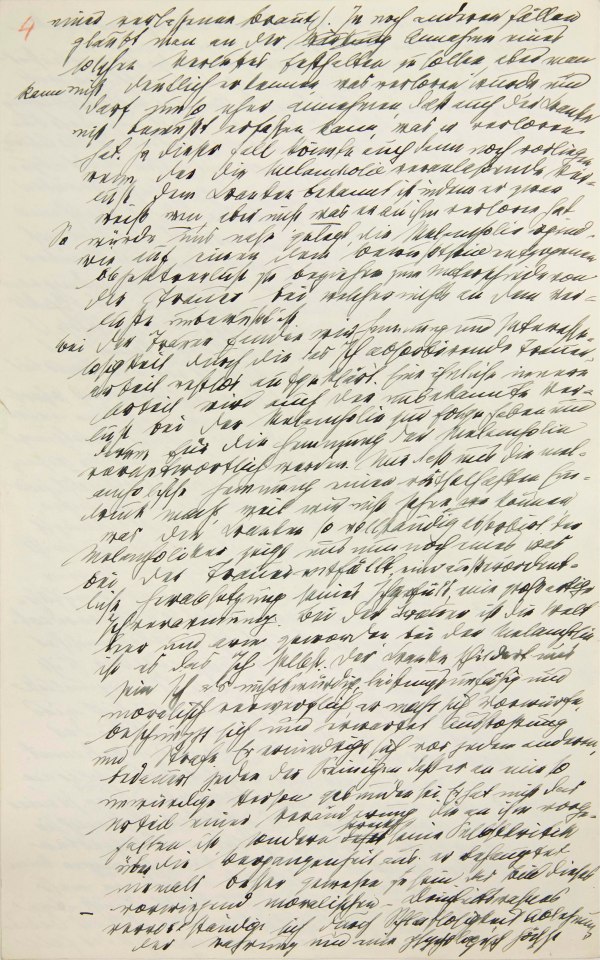 4 einer verlassenen Braut). In noch anderen Fällen
glaubt man an der Annahme eines
solchen Verlustes festhalten zu sollen aber man
kann nicht deutlich erkennen, was verloren wurde und
darf umso eher annehmen, daß auch der Kranke
nicht bewußt erfassen kann, was er verloren
hat. Ja dieser Fall könnte auch dann noch vorliegen
wenn der die Melancholie veranlassende Ver-
lust dem Kranken bekannt ist indem er zwar
weiß wen, aber nicht was er an ihm verloren hat.
So würde uns nahe gelegt die Melancholie irgend-
wie auf einen dem Bewußtsein entzogenen
Objektverlust zu beziehen zum Unterschiede von
der Trauer bei welcher nichts an dem Ver-
luste unbewußt ist
Bei der Trauer fanden wir Hemmung und Interesse-
losigkeit durch die das Ich absorbirende Trauer-
arbeit restlos aufgeklärt. Eine ähnliche innere
Arbeit wird auch der unbekannte Ver-
lust bei der Melancholie zur Folge haben und
darum für die Hemmung der Melancholie
verantwortlich werden. Nur daß uns die mel-
ancholische Hemmung einen rätselhaften Ein-
druck macht, weil wir nicht sehen können
was die Kranken so vollständig absorbirt. Der
Melancholiker zeigt uns nun noch eines was
bei der Trauer entfällt, eine außerordent-
liche Herabsetzung seines Ichgefühls, eine großartige
Ichverarmung. Bei der Trauer ist die Welt
leer und arm geworden bei der Melancholie
ist es das Ich selbst. Der Kranke schildert uns
sein Ich als nichtswürdig, leistungsunfähig und
moralisch verwerflich er macht sich Vorwürfe,
beschimpft sich und erwartet Ausstoßung
und Strafe. Er erniedrigt sich vor jedem anderen,
bedauert jeden der Seinigen daß er an eine so
unwürdige Person gebunden sei. Er hat nicht das
Urteil einer Veränderung die an ihm vorge-
fallen ist sondern streckt seine Selbstkritik
über die Vergangenheit aus. er behauptet
niemals besser gewesen zu sein. Das Bild dieses
vorwiegend moralischen – Kleinheitswahns
vervollständigt sich durch Schlaflosigkeit Ablehnung
der Nahrung und eine psychologisch höchst